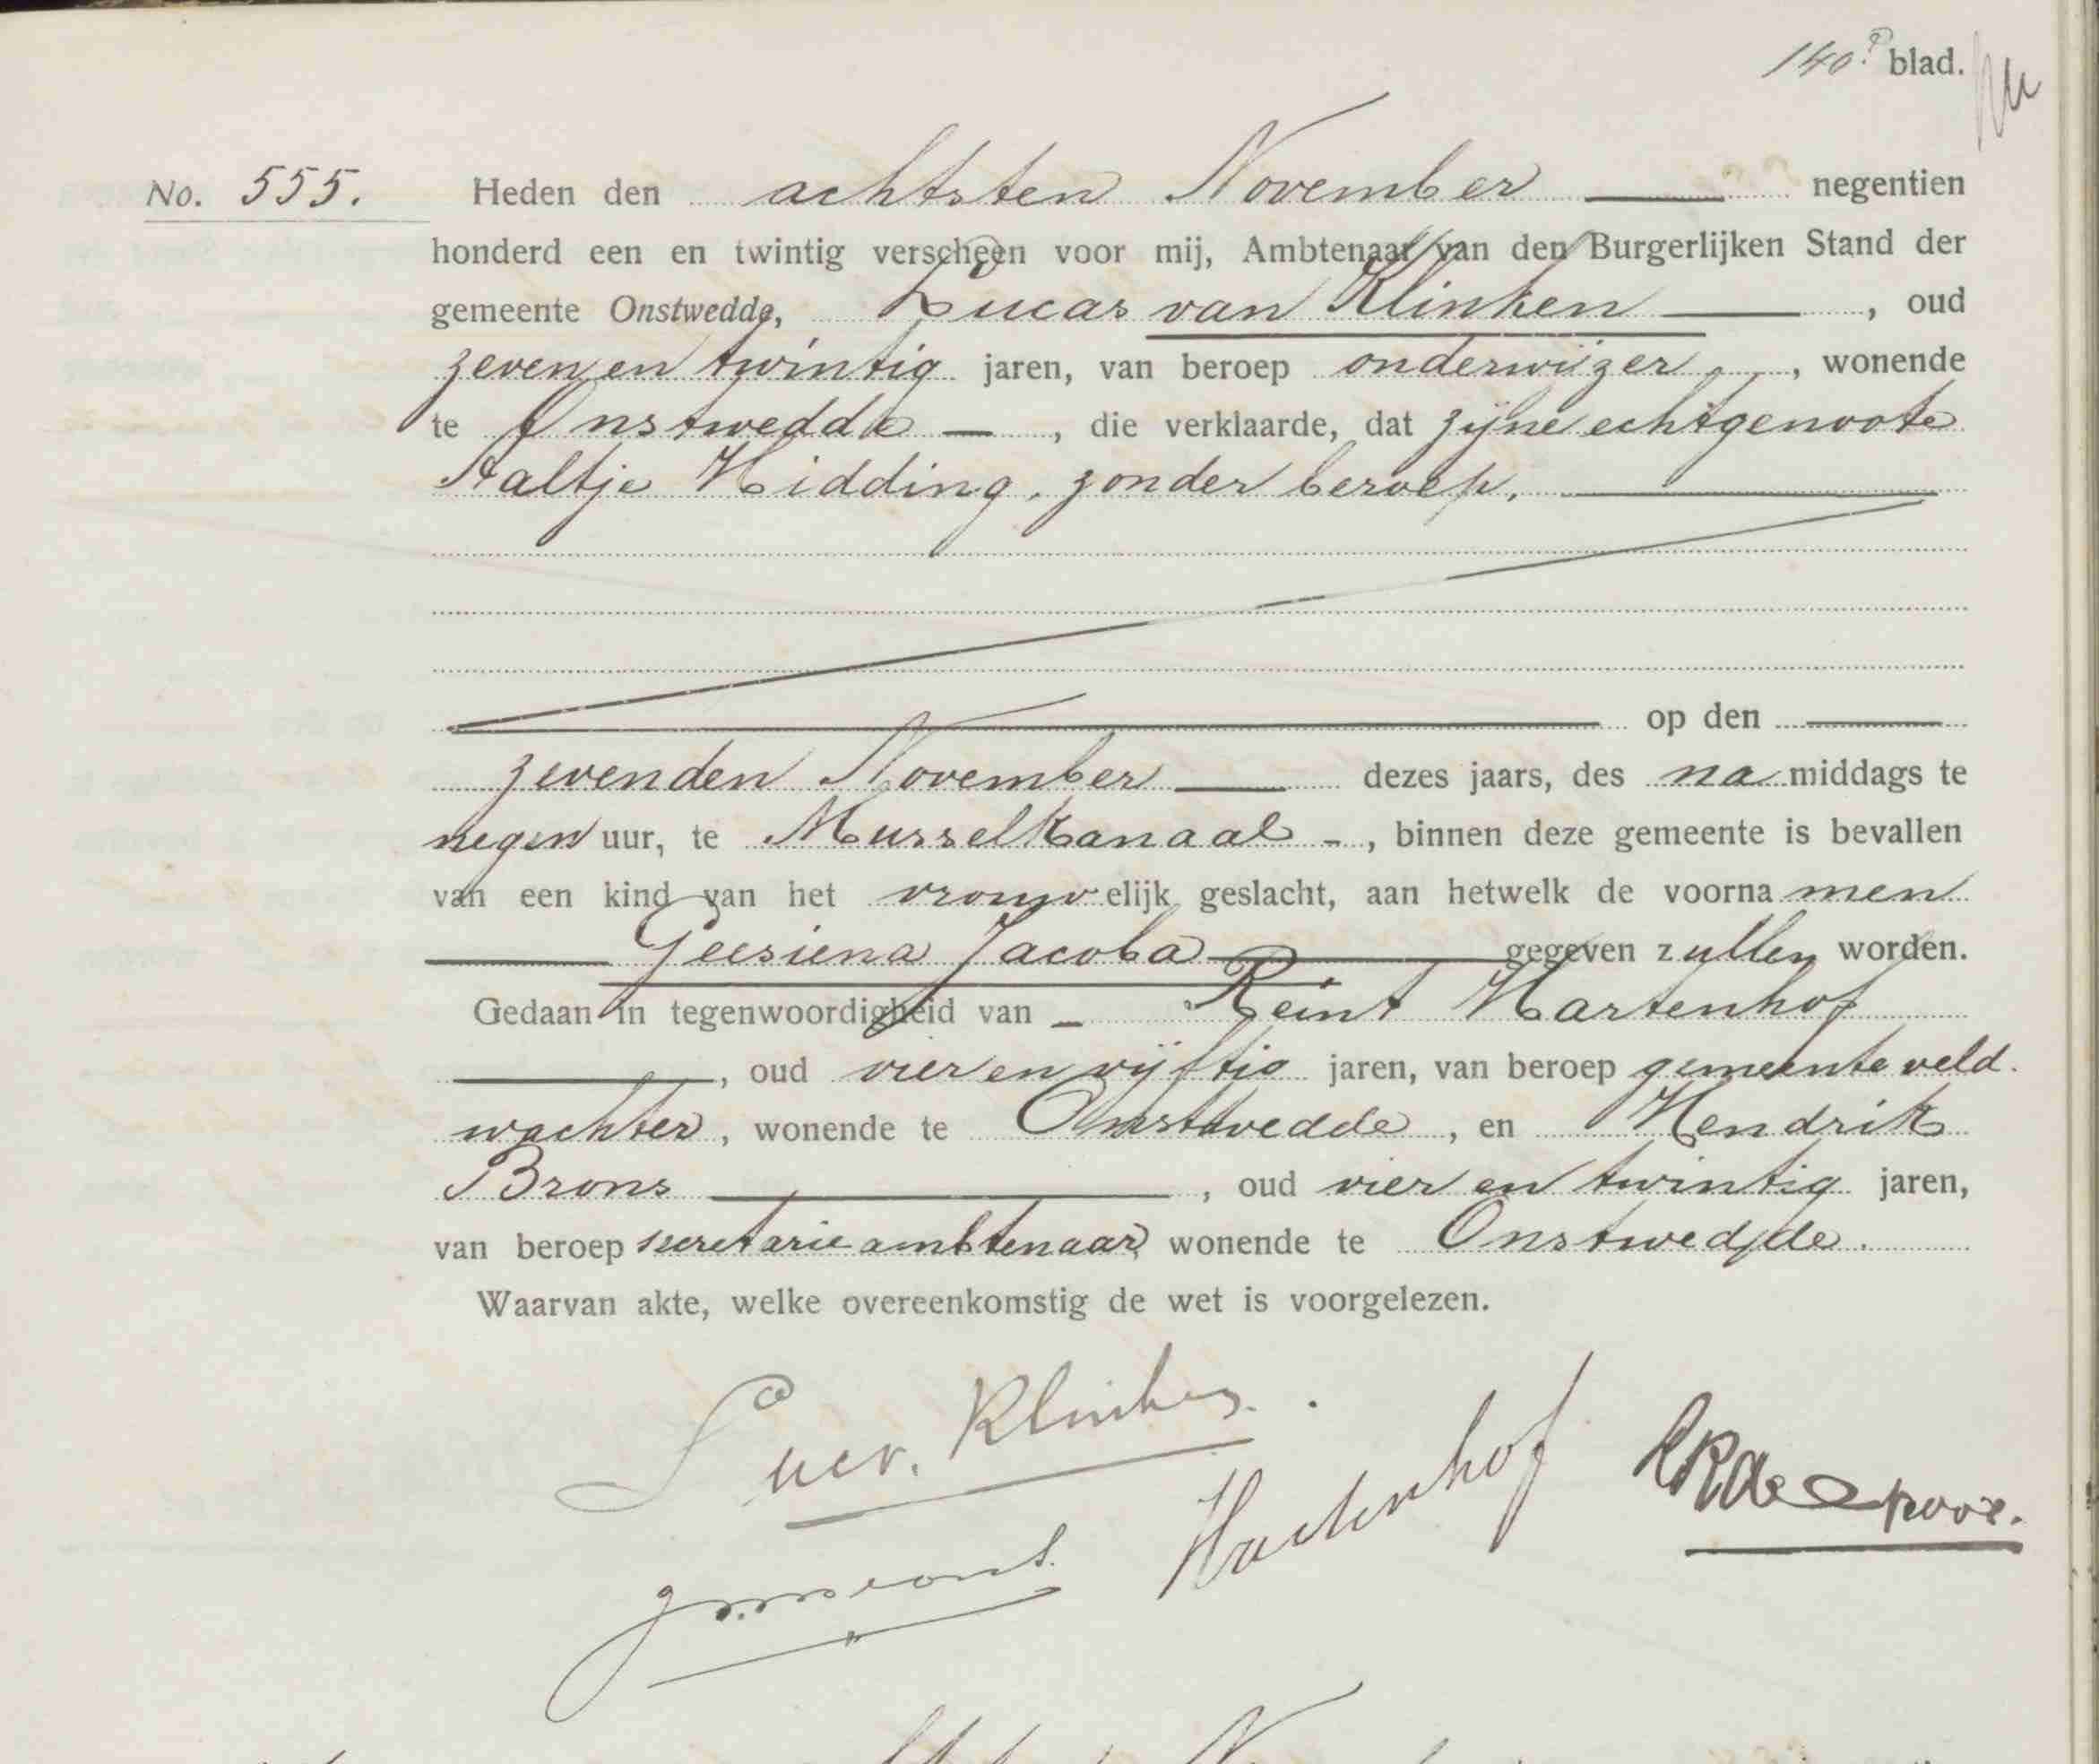 140e blad.
No. 555. Heden den achtsten November negentien
honderd een en twintig verscheen voor mij, Ambtenaar van den Burgerlijken Stand der
gemeente Onstwedde, Lucas van Klinken , oud
zeven en twintig jaren, van beroep onderwijzer , wonende
te Onstwedde , die verklaarde, dat zijne echtgenoote
Aaltje Hidding, zonder beroep,
op den
zevenden November dezes jaars, des namiddags te
negen uur, te Musselkanaal , binnen deze gemeente is bevallen
van een kind van het vrouwelijk geslacht, aan hetwelk de voornamen
Geesiena Jacoba gegeven zullen worden.
Gedaan in tegenwoordigheid van Reint Hartenhof
, oud vier en vijftig jaren, van beroep gemeente veld-
wachter, wonende te Onstwedde , en Hendrik
Brons , oud vier en twintig jaren,
van beroep secretarieambtenaar, wonende te Onstwedde.
Waarvan akte, welke overeenkomstig de wet is voorgelezen.
Luc v. Klinken.
Hartenhof